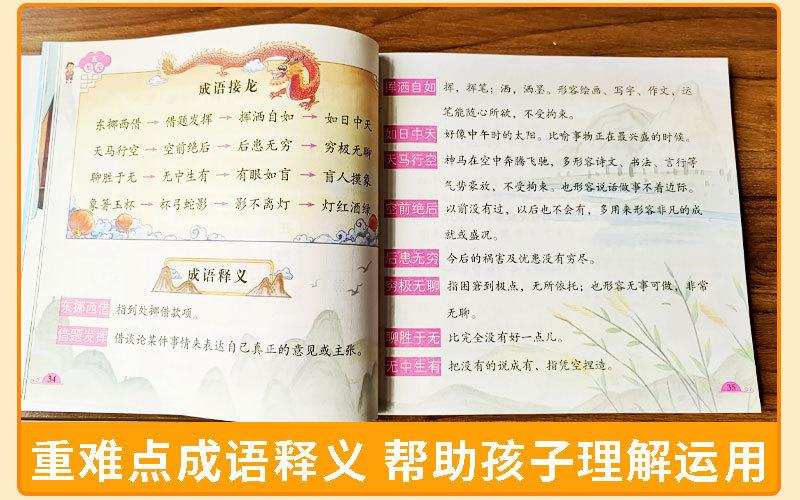 成语接龙
东挪西借→借题发挥→挥洒自如→如日中天
天马行空→空前绝后→后患无穷→穷极无聊
聊胜于无→无中生有→有眼如盲→盲人摸象
象箸玉杯→杯弓蛇影→影不离灯→灯红酒绿
成语释义
东挪西借 指到处挪借款项。
借题发挥 借谈论某件事情来表达自己真正的意见或主张。
34
挥洒自如 挥,挥笔;洒,洒墨。形容绘画、写字、作文,运
笔能随心所欲,不受拘束。
如日中天 好像中午时的太阳。比喻事物正在最兴盛的时候。
天马行空 神马在空中奔腾飞驰,多形容诗文、书法、言行等
气势豪放,不受拘束。也形容说话做事不着边际。
空前绝后 以前没有过,以后也不会有,多用来形容非凡的成
就或盛况。
后患无穷 今后的祸害及忧患没有穷尽。
穷极无聊 指困窘到极点、无所依托;也形容无事可做,非常
无聊。
聊胜于无 比完全没有好一点儿。
无中生有 把没有的说成有,指凭空捏造。
35
重难点成语释义 帮助孩子理解运用